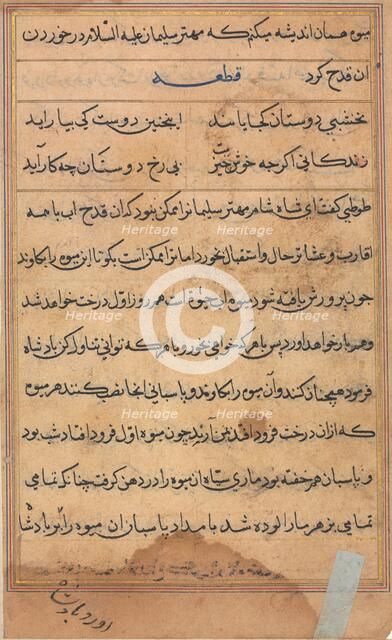 میوه همان اندیشه میکنم که مهتر سلیمان علیه السلام در خوردن
ان قدح کرد قطعه
نخشبی دوستان کجا یابند اینچنین دوست کی بیاراید
زندگانی اگرچه خوش چیزیست بی رخ دوستان چه کار آید
طوطی گفت ای شاه مهتر سلیمانرا ممکن نبود که ان قدح اب با همه
اقارب و عشایر حال و استقبال بخورد اما ترا ممکن است بگو تا این میوه را بکاوند
چون پرورش یافته شود میوه است هم روز اول درخت خواهد شد
و هم بار خواهد اورد پس با هر که خواهی بخور و با هر که توانی تناول کن بادشاه
فرمود همچنان کنند وآن میوه را بکاوند و پاسبانی انجا نصب کنند هر میوه
که ازان درخت فرود افتد بمن آرند چون میوه اول فرود افتاد شب بود
و پاسبان هم خفته بود ماری سیاه ان میوه را در دهن گرفت چنانکه تمامی
تمامی بزهر مار الوده شد بامداد پاسبان ان میوه را بر بادشاه
اورد بادشاه
Heritage
Heritage
Heritage
Heritage
Heritage
Heritage